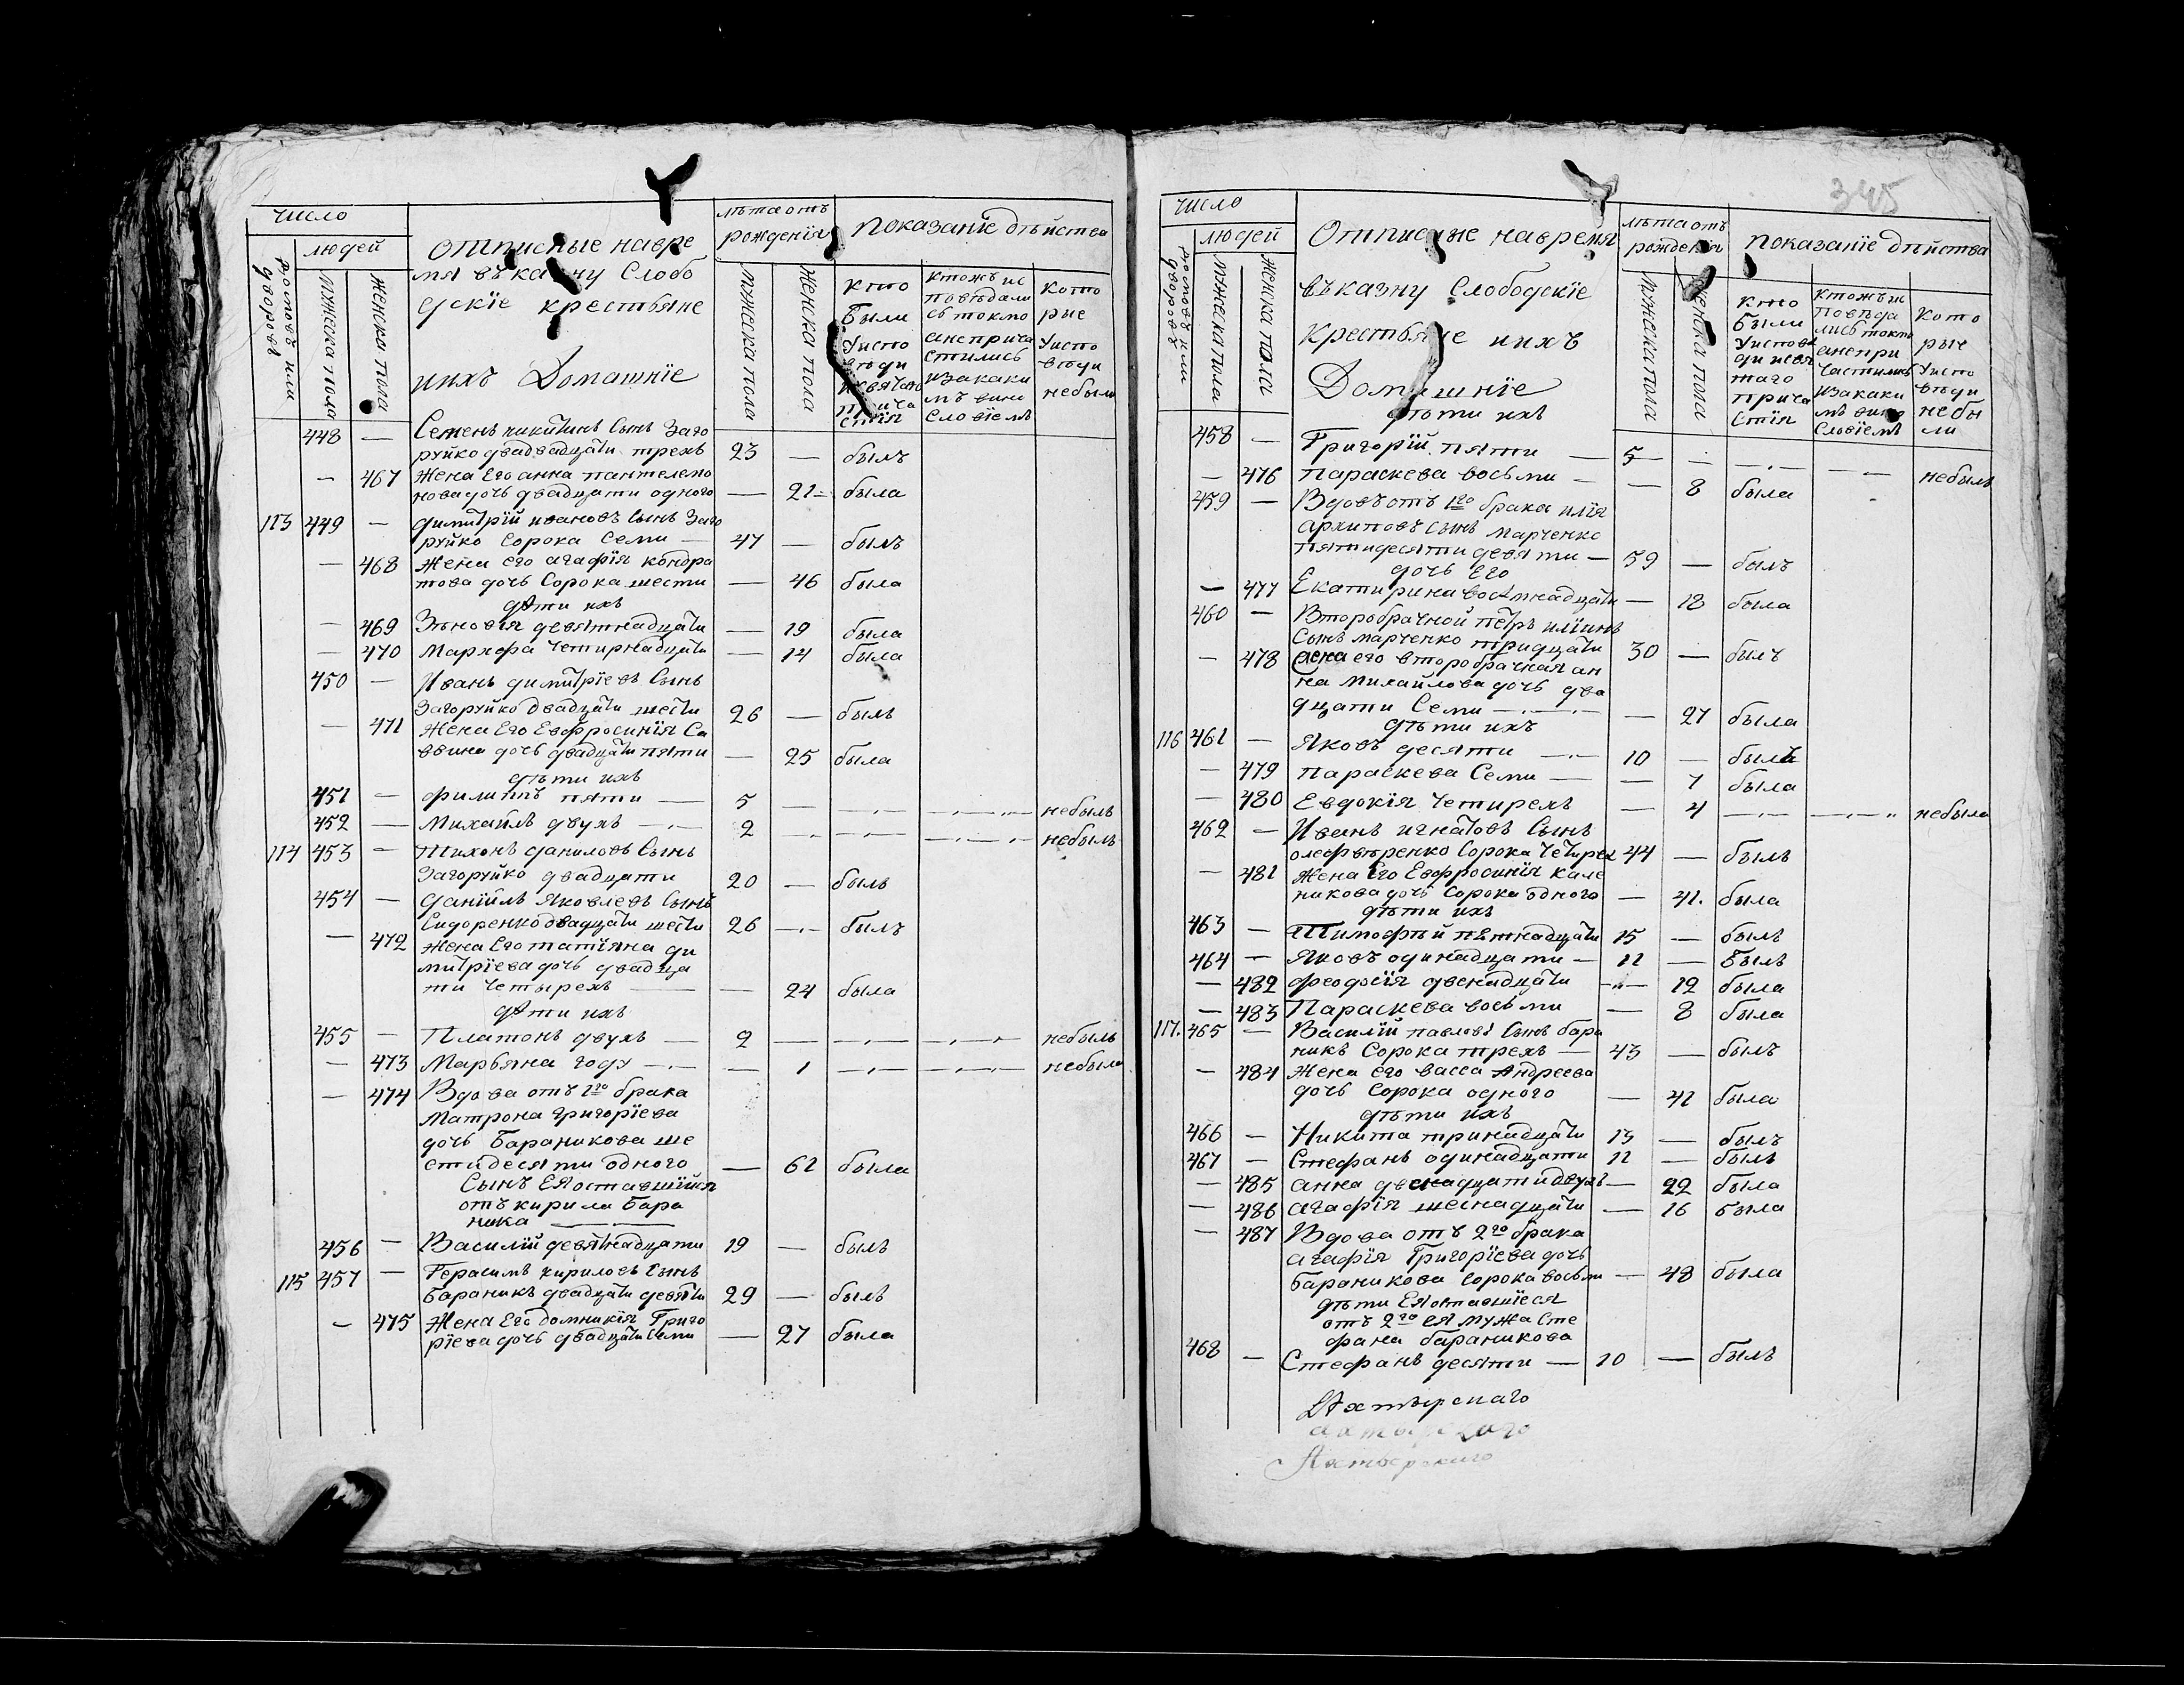 число
людей
домовъ или дворовъ
мужеска пола
женска пола
отписные навре
мя въ казну слобо
дскіе крестьяне
ихъ Домашніе
лѣта отъ
рожденія
мужеска пола
женска пола
показаніе дѣйства
кто
были
уиспо
вѣди
исвятаго
прича
стія
ктожъ ис
повѣдали
сь токмо
анеприча
стились
изакаки
мъ вино
словіемъ
кото
рые
уиспо
вѣди
небыли
448 — Семенъ никитинъ сынъ Заго
руйко двадвадцати трехъ 23 — былъ
— 467 Жена Его анна пантелемо
нова дочь двадцати одного — 21 — была
113 449 — димитрій ивановъ сынъ Заго
руйко сорока семи — 47 — былъ
— 468 Жена его агафія кондра
това дочь сорока шести — 46 была
дѣти ихъ
— 469 Зѣновія девятнадцати — 19 была
— 470 Марѳфа четирнадцати — 14 была
450 — Иванъ димитріевъ сынъ
Загоруйко двадцати шести 26 — былъ
— 471 Жена Его Евфросинія Са
ввина дочь двадцати пяти — 25 была
дѣти ихъ
451 — филиппъ пяти — 5 — небылъ
452 — Михаилъ двухъ 2 — небылъ
114 453 — Тихонъ даниловъ сынъ
Загоруйко двадцати 20 — былъ
454 — даніилъ Яковлевъ сынъ
Сидоренко двадцати шести 26 — былъ
— 472 Жена Его татіяна ди
митріева дочь двадца
ти четырехъ — 24 была
дѣти ихъ
455 — Платонъ двухъ — 2 — небылъ
— 473 Марьяна году — 1 — небыла
— 474 Вдова отъ 1го брака
Матрона григоріева
дочь Бараникова ше
стидесяти одного — 61 была
Сынъ Ея оставшійся
отъ кирила Бара
ника
456 — Василій девятнадцати 19 — былъ
115 457 — Герасимъ кириловъ сынъ
Бараникъ двадцати девяти 29 — былъ
— 475 Жена Его домникія Григо
ріева дочь двадцати семи — 27 была
345
число
людей
домовъ или дворовъ
мужеска пола
женска пола
Отписные навремя
въ казну слободскіе
крестьяне ихъ
Домашніе
лѣта отъ
рожденія
мужеска пола
женска пола
показаніе дѣйства
кто
были
уиспове
ди исвя
таго
прича
стія
ктожъ ис
повѣда
лись токмо
анепри
частились
изакаки
мъ вино
словіемъ
кото
рые
уиспо
вѣди
небы
ли
дѣти ихъ
458 — Григорій пяти — 5 — небылъ
— 476 параскева восьми — 8 была
459 — Вдовъ отъ 1го брака илія
архиповъ сынъ Марченко
пятидесяти девяти — 59 — былъ
дочь Его
— 477 Екатирина восмнадцати — 18 была
460 — Второбрачной петръ иліинъ
сынъ марченко тридцати 30 — былъ
— 478 Жена его второбрачная ан
на Михайлова дочь два
дцати семи — 27 была
дѣти ихъ
116 461 — Яковъ десяти 10 — былъ
— 479 параскева семи — 7 была
— 480 Евдокія четирехъ — 4 — небыла
462 — Иванъ игнатовъ сынъ
олефѣренко сорока четирех 44 — былъ
— 481 Жена Его Евфросинія кале
никова дочь сорока одного — 41. была
дѣти ихъ
463 — Тимофѣй пятнадцати 15 — былъ
464 — Яковъ одинадцати — 11 — былъ
— 482 феофія двенадцати — 12 была
— 483 Параскева восьми — 8 была
117. 465 — Василій павловъ сынъ бара
никъ сорока трехъ — 43 — былъ
— 484 Жена его васса Андреева
дочь сорока одного — 41 была
дѣти ихъ
466 — Никита тринадцати 13 — былъ
467 — Стефанъ одинадцати 11 — былъ
— 485 анна двенадцати двухъ — 22 была
— 486 агафія шеснадцати — 16 была
— 487 Вдова отъ 2го брака
агафія Григоріева дочь
бараникова сорока восьми — 48 была
дѣти Ея оставшіеся
отъ 2го ея мужа Сте
фана бараникова
468 — Стефанъ десяти — 10 — былъ
Ахтырскаго
Ахтырскаго